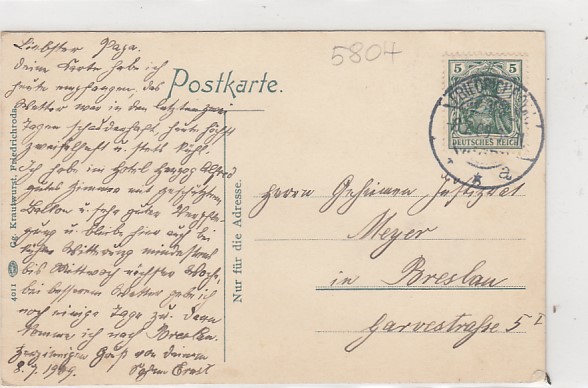 Liebster Papa.
deine Karte habe ich
heute empfangen, das
Wetter war in den letzten zwei
Tagen schauderhaft, heute höchst
zweifelhaft u. stark kühl.
Ich habe im Hotel Herzog Alfred
gutes Zimmer mit geschütztem
Balkon u. sehr guter Verpfle-
gung u. bleibe hier auch bei
kühler Witterung mindestens
bis Mittwoch nächster Woche,
bei besserem Wetter gebe ich
noch einige Tage zu. Dann
komme ich nach Breslau.
Gruß von deinem
8. 7. 1909. Sohn Ernst
5804
Postkarte.
5 5
DEUTSCHES REICH
FRIEDRICHRODA
a
Herrn Geheimen Justizrat
Meyer
in Breslau
Garvestrasse 5 I
Nur für die Adresse.
4011 Gg. Krautwurst, Friedrichroda.